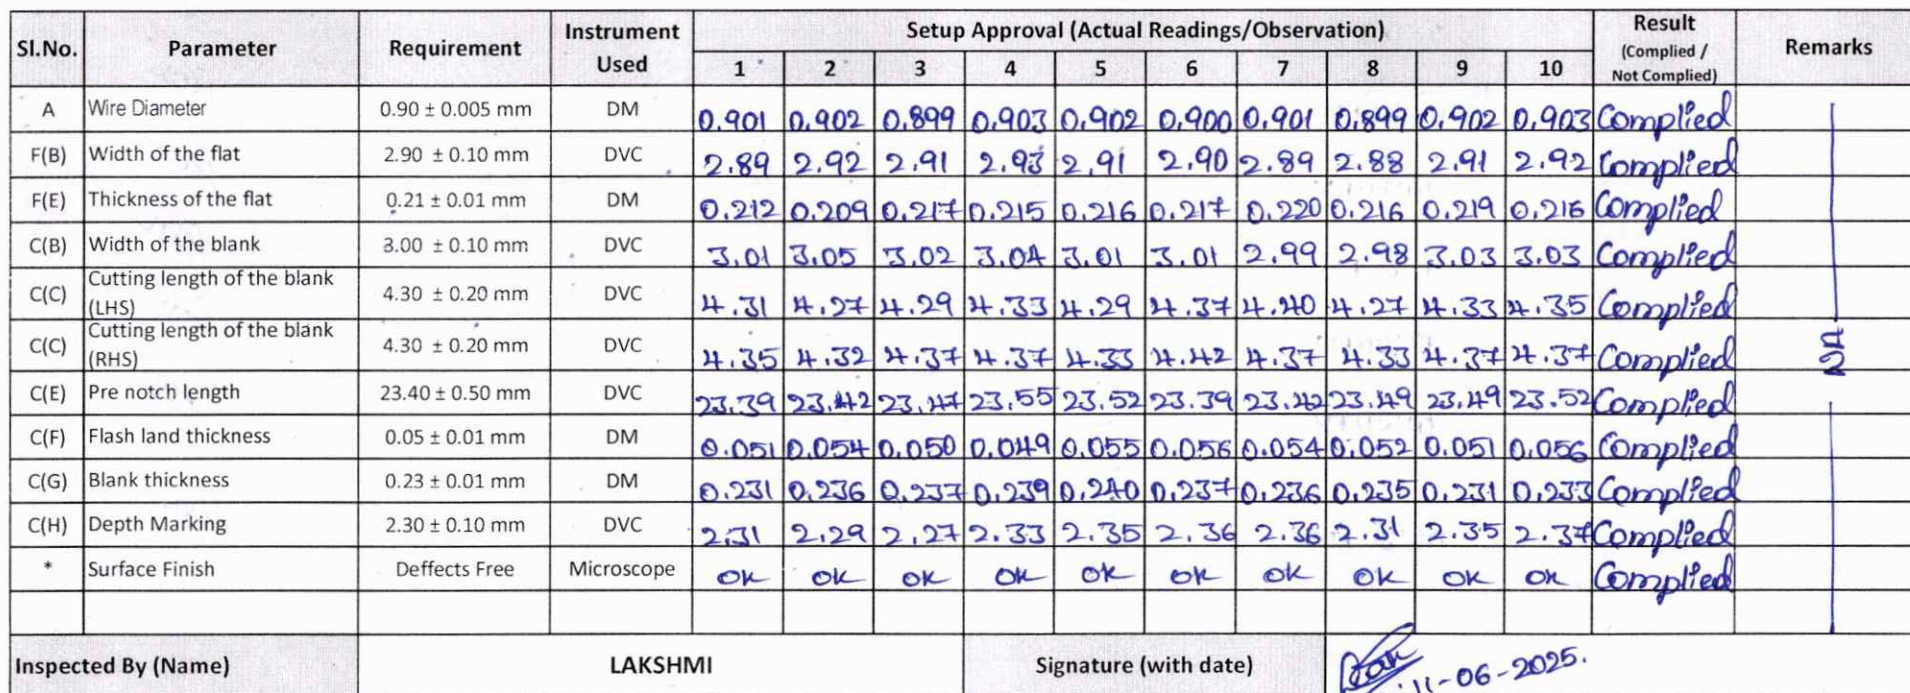 Sl.No. Parameter Requirement Instrument Used Setup Approval (Actual Readings/Observation) Result (Complied / Not Complied) Remarks
1 2 3 4 5 6 7 8 9 10
A Wire Diameter 0.90 ± 0.005 mm DM 0.901 0.902 0.899 0.903 0.902 0.900 0.901 0.899 0.902 0.903 Complied
F(B) Width of the flat 2.90 ± 0.10 mm DVC 2.89 2.92 2.91 2.93 2.91 2.90 2.89 2.88 2.91 2.92 Complied
F(E) Thickness of the flat 0.21 ± 0.01 mm DM 0.212 0.209 0.217 0.215 0.216 0.217 0.220 0.216 0.219 0.216 Complied
C(B) Width of the blank 3.00 ± 0.10 mm DVC 3.01 3.05 3.02 3.04 3.01 3.01 2.99 2.98 3.03 3.03 Complied
C(C) Cutting length of the blank (LHS) 4.30 ± 0.20 mm DVC 4.31 4.27 4.29 4.33 4.29 4.37 4.40 4.27 4.33 4.35 Complied
C(C) Cutting length of the blank (RHS) 4.30 ± 0.20 mm DVC 4.35 4.32 4.37 4.37 4.33 4.42 4.37 4.33 4.37 4.37 Complied
NA
C(E) Pre notch length 23.40 ± 0.50 mm DVC 23.39 23.42 23.47 23.55 23.52 23.39 23.42 23.49 23.49 23.52 Complied
C(F) Flash land thickness 0.05 ± 0.01 mm DM 0.051 0.054 0.050 0.049 0.055 0.056 0.054 0.052 0.051 0.056 Complied
C(G) Blank thickness 0.23 ± 0.01 mm DM 0.231 0.236 0.237 0.239 0.240 0.237 0.236 0.235 0.231 0.233 Complied
C(H) Depth Marking 2.30 ± 0.10 mm DVC 2.31 2.29 2.27 2.33 2.35 2.36 2.36 2.31 2.35 2.37 Complied
* Surface Finish Deffects Free Microscope OK OK OK OK OK OK OK OK OK OK Complied
Inspected By (Name) LAKSHMI Signature (with date) 11-06-2025.